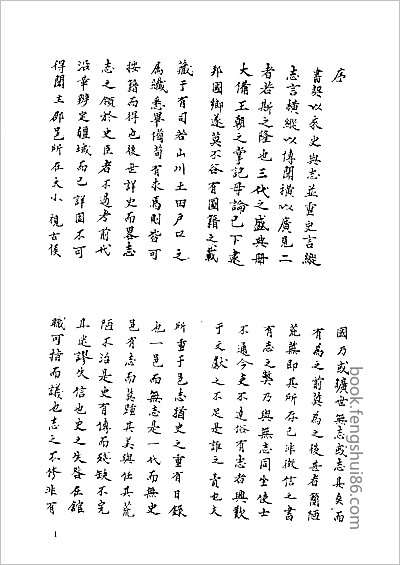 序
書契以來史與志並重史言縱
志言橫縱以傳聞橫以廣見二
者若斯之隆也三代之盛典冊
大備王朝之掌記毋論已下逮
邦國鄉遂莫不各有圖籍之載
藏于有司若山川土田戶口之
屬纖悉畢備苟有求焉則皆可
按籍而得也後世詳史而畧志
志之領於史臣者不過考前代
沿革辨疆域而已詳固不可
得聞主郡邑所在大小視古侯
國乃或曠世無志或志具矣而
有為之前莫為之後甚者簡陋
荒蕪即其所存已非徵信之書
有志之獎乃與無志同坐使士
不通今吏不達俗有志者興歎
于文獻之不足是誰之責也夫
所重于邑志猶史之重有日錄
也一邑而無志是一代而無史
邑有志而莫踵其美與任其荒
陋不治是史有傳而殘缺不完
且迷謬失信也史之失咎在館
職可指而議也志之不修非有
1
book.fengshui86.com